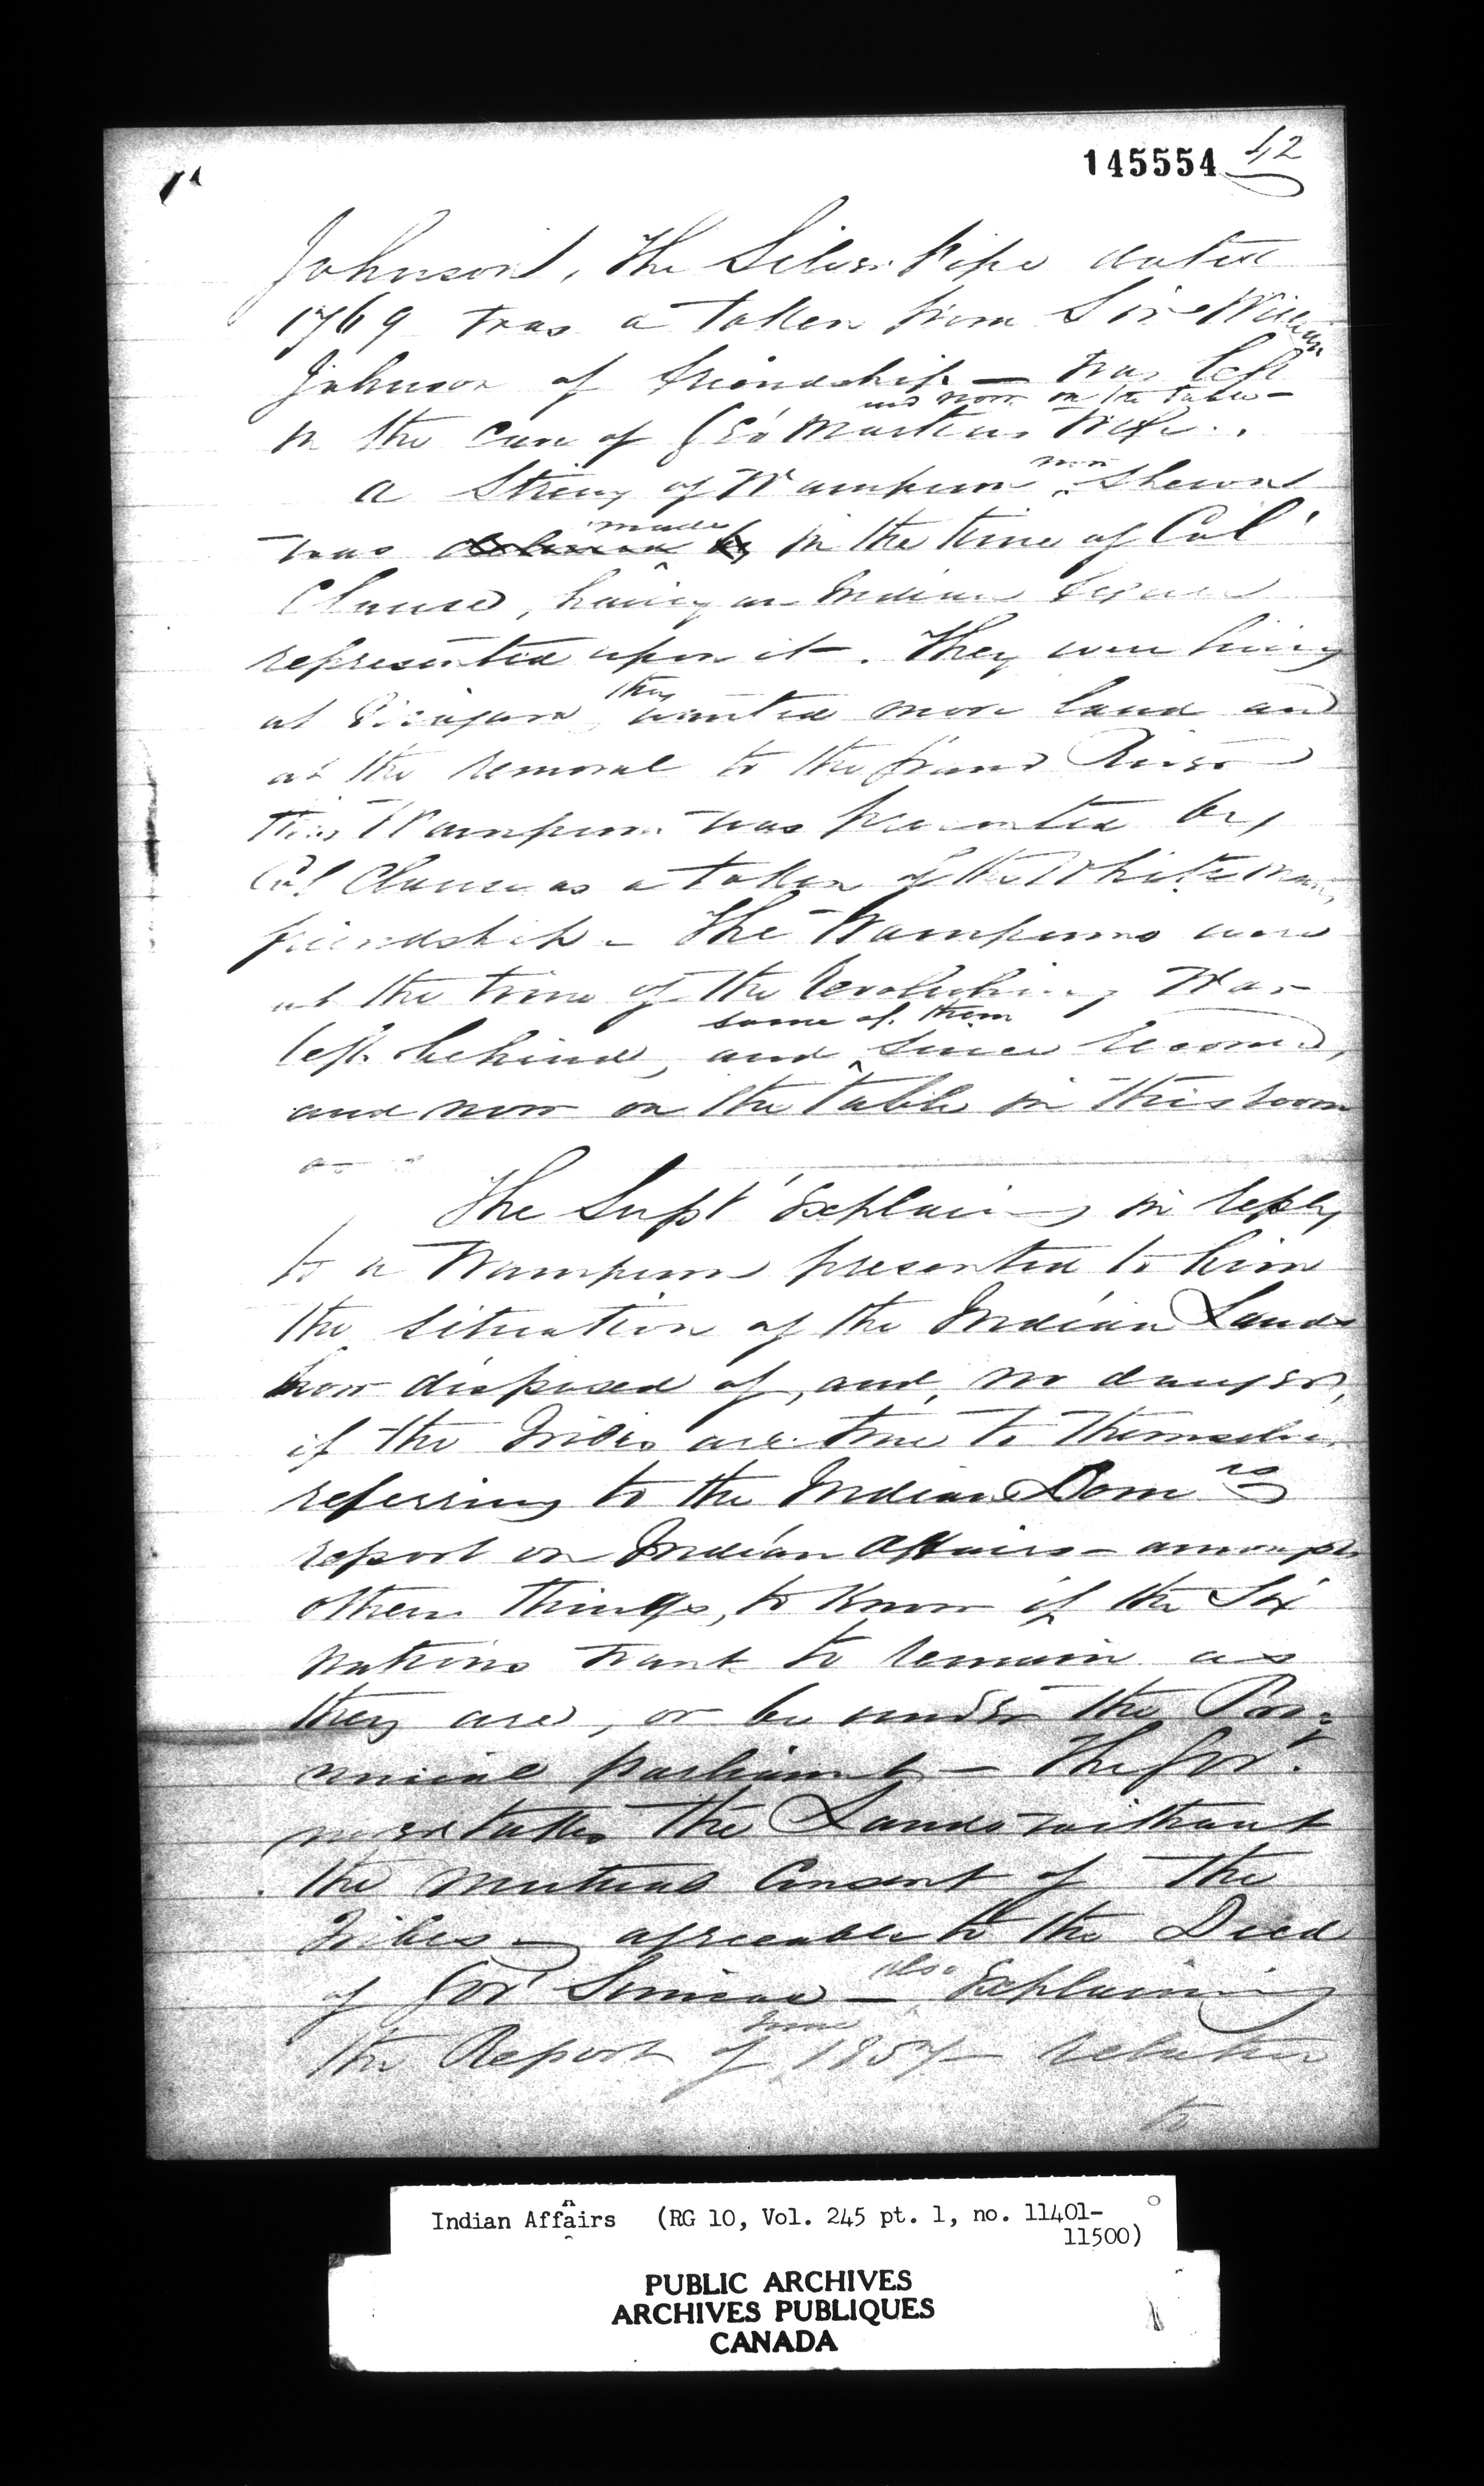 145554 42
Johnson, The Silver Pipe dated
1769 was a token from Sir William
Johnson of friendship — was left
and now on the table —
in the care of Geo Martins Wife.
now
a String of Wampum shewn
made
was in the time of Col
Clause, having an Indian figure
represented upon it. They were living
they
at Niagara, wanted more land and
at the removal to the Grand River
this Wampum was presented by
Col Clause as a token of the White mans
friendship — The Wampums were
at the time of the Revolutionary War
some of them
left behind, and since recovered,
and now on the table in this room
The Supt explaining in reply
to a Wampum presented to him
the situation of the Indian Lands
how disposed of, and no danger,
if the Tribes are true to themselves
referring to the Indian Domrs
report on Indian Affairs — amongst
other things, to know if the Six
Nations want to remain as
they are, or be under the Pro=
vincial parliament — The Govt
never takes the Lands without
the mutual Consent of the
Tribes — agreeable to the Deed
also
of Govr Simcoe — explaining
the Report of 1857 — relative
to
Indian Affairs (RG 10, Vol. 245 pt. 1, no. 11401-
11500)
PUBLIC ARCHIVES
ARCHIVES PUBLIQUES
CANADA